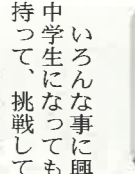 いろんな事に興
中学生になっても
持って、挑戦して